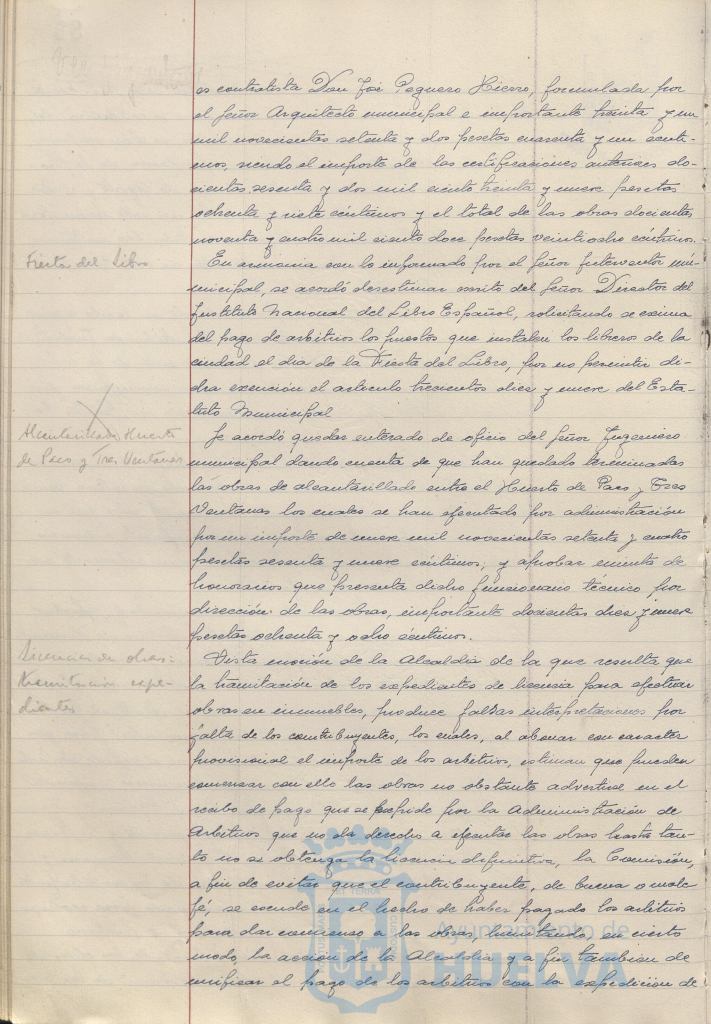 es contratista Don José Peguero Hierro, formulada por
el Señor Arquitecto municipal e importante treinta y un
mil novecientas setenta y dos pesetas cuarenta y un cénti-
mos, siendo el importe de las certificaciones anteriores do-
cientas sesenta y dos mil ciento treinta y nueve pesetas
ochenta y siete céntimos y el total de las obras docientas
noventa y cuatro mil ciento doce pesetas veintiocho céntimos.
Fiesta del Libro
En armonia con lo informado por el Señor Interventor mu-
nicipal, se acordó desestimar escrito del Señor Director del
Instituto Nacional del Libro Español, solicitando se exima
del pago de arbitrios los puestos que instalen los libreros de la
ciudad el dia de la Fiesta del Libro, por no permitir di-
cha exención el articulo trescientos diez y nueve del Esta-
tuto Municipal
Alcantarillado Huerto
de Paco y Tres Ventanas
Se acordó quedar enterado de oficio del Señor Ingeniero
municipal dando cuenta de que han quedado terminadas
las obras de alcantarillado entre el Huerto de Paco y Tres
Ventanas los cuales se han efectuado por administración
por un importe de nueve mil novecientas setenta y cuatro
pesetas sesenta y nueve céntimos, y aprobar minuta de
honorarios que presenta dicho funcionario técnico por
dirección de las obras, importante docientas diez y nueve
pesetas ochenta y ocho céntimos.
Licencias de obras:
tramitación expe-
dientes
Vista moción de la Alcaldia de la que resulta que
la tramitación de los expedientes de licencia para efectuar
obras en inmuebles, produce falsas interpretaciones por
falta de los contribuyentes, los cuales, al abonar con caracter
provisional el importe de los arbitrios, estiman que pueden
comenzar con ello las obras no obstante advertirse en el
recibo de pago que se expide por la Administración de
Arbitrios que no da derecho a efectuar las obras hasta tan-
to no se obtenga la licencia definitiva, la Comisión,
a fin de evitar que el contribuyente, de buena o mala
fé, se escude en el hecho de haber pagado los arbitrios
para dar comienzo a las obras, limitando, en cierto
modo, la acción de la Alcaldia y a fin tambien de
unificar el pago de los arbitrios con la expedición de
Ayuntamiento de
HUELVA